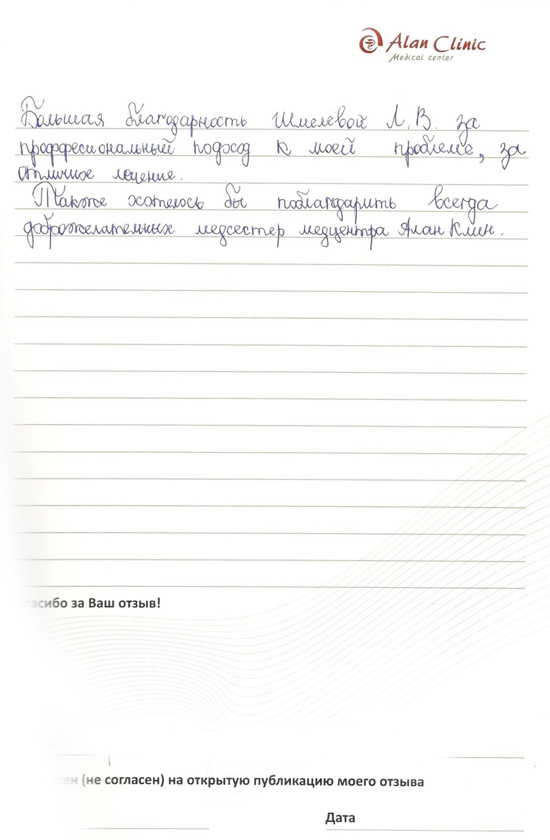 Alan Clinic
Medical center
Большая благодарность Шмелевой Л.В. за
проффесиональный подход к моей проблеме, за
отличное лечение.
Также хотелось бы поблагодарить всегда
доброжелательных медсестер медцентра Алан Клин.
асибо за Ваш отзыв!
ен (не согласен) на открытую публикацию моего отзыва
Дата